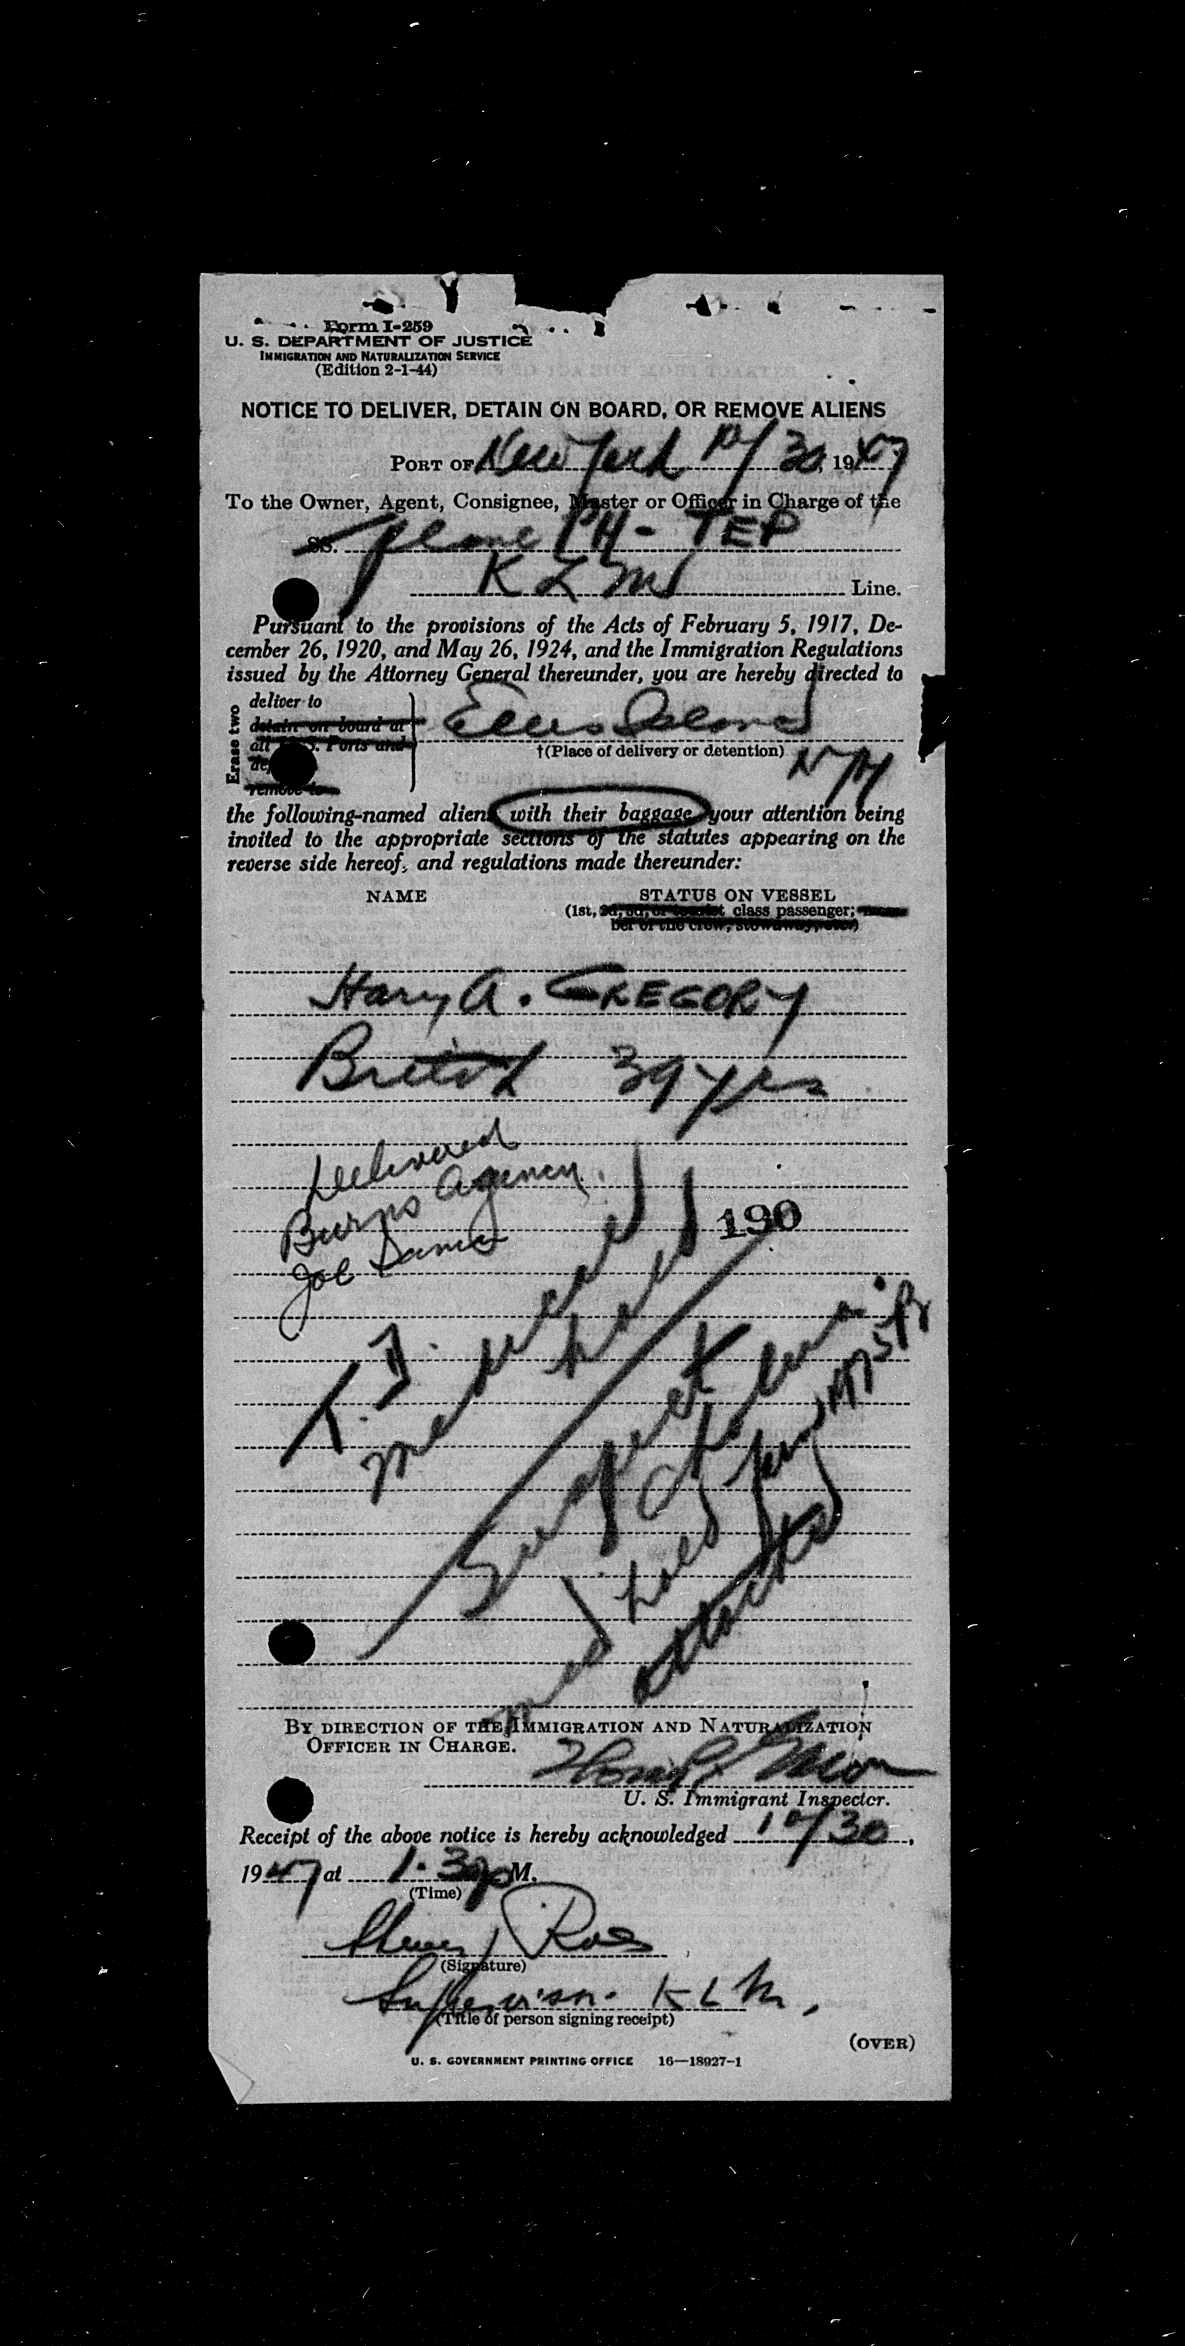 Form I-259
U. S. DEPARTMENT OF JUSTICE
IMMIGRATION AND NATURALIZATION SERVICE
(Edition 2-1-44)
NOTICE TO DELIVER, DETAIN ON BOARD, OR REMOVE ALIENS
PORT OF New York 12/30, 1947
To the Owner, Agent, Consignee, Master or Officer in Charge of the
SS. plane PH - TEP
K L M Line.
Pursuant to the provisions of the Acts of February 5, 1917, De-
cember 26, 1920, and May 26, 1924, and the Immigration Regulations
issued by the Attorney General thereunder, you are hereby directed to
Erase two
deliver to
detain on board at
all U. S. Ports and
remove to
Ellis Island
†(Place of delivery or detention)
N Y
the following-named aliens with their baggage your attention being
invited to the appropriate sections of the statutes appearing on the
reverse side hereof, and regulations made thereunder:
NAME STATUS ON VESSEL
(1st, 2d, 3d, or tourist class passenger; mem-
ber of the crew, stowaway, etc.)
Harry A. GREGORY
British 39 yrs
Delivered
Burns Agency.
Joe
190
T. D.
Medical
held
Suspect
Med. held
attached
BY DIRECTION OF THE IMMIGRATION AND NATURALIZATION
OFFICER IN CHARGE.
U. S. Immigrant Inspector.
Receipt of the above notice is hereby acknowledged 12/30,
1947 at 1.30 p M.
(Time)
Ross
(Signature)
Supervisor. K L M.
(Title of person signing receipt)
(OVER)
U. S. GOVERNMENT PRINTING OFFICE 16—18927-1